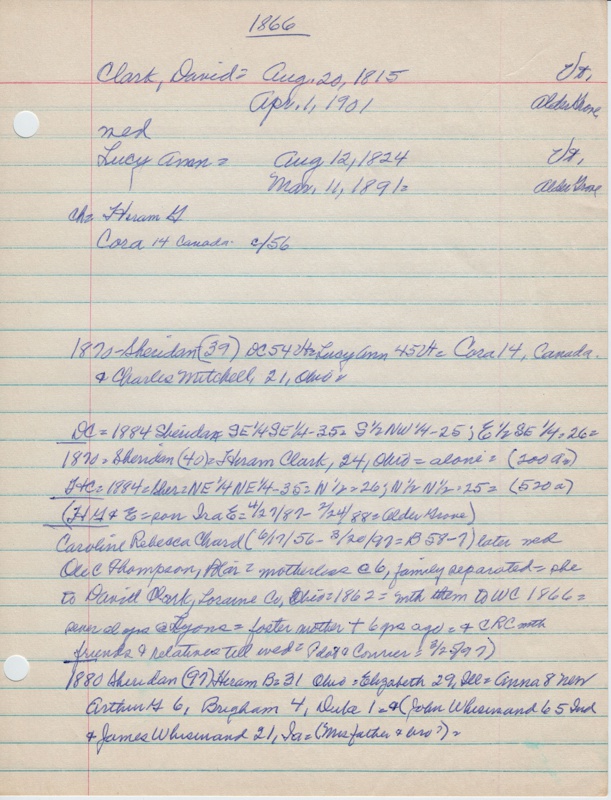 1866
Clark, David = Aug. 20, 1815 Vt,
Apr. 1, 1901 Alder Grove
med
Lucy Ann = Aug 12, 1824 Vt,
Mar. 11, 1891 = Alder Grove
ch = Hiram G
Cora 14 Canada. c/56
1870 - Sheridan (39) DC 54 Vt = Lucy Ann 45 Vt = Cora 14, Canada.
& Charles Mitchell, 21, Ohio =
DC = 1884 Sheridan SE 1/4 SE 1/4 - 35 = S 1/2 NW 1/4 - 25; E 1/2 SE 1/4 = 26 =
1870 = Sheridan (40) = Hiram Clark, 24, Ohio = alone = (200 a=)
HC = 1884 = Sher = NE 1/4 NE 1/4 - 35 = N 1/2 = 26; N 1/2 N 1/2 = 25 = (520 a)
(H & E = son Ira E = 4/27/87 - 2/24/88 = Alder Grove)
Caroline Rebecca Chard (6/17/56 - 3/20/97 = B 58-7) later med
Ole C Thompson, Blair = motherless @ 6, family separated = she
to David Clark, Loraine Co, Ohio = 1862 = with them to WC 1866 =
several yrs @ Lyons = foster mother + 6 ys ago = & CRC with
friends & relatives till wed = Pilot & Courier = 3/25/97)
1880 Sheridan (97) Hiram B = 31 Ohio = Elizabeth 29, Ill = Anna 8 new
Arthur H 6, Brigham 4, Duke 1 = & (John Whisinand 65 Ind
& James Whisinand 21, Ia = (Mrs father & bro?) =